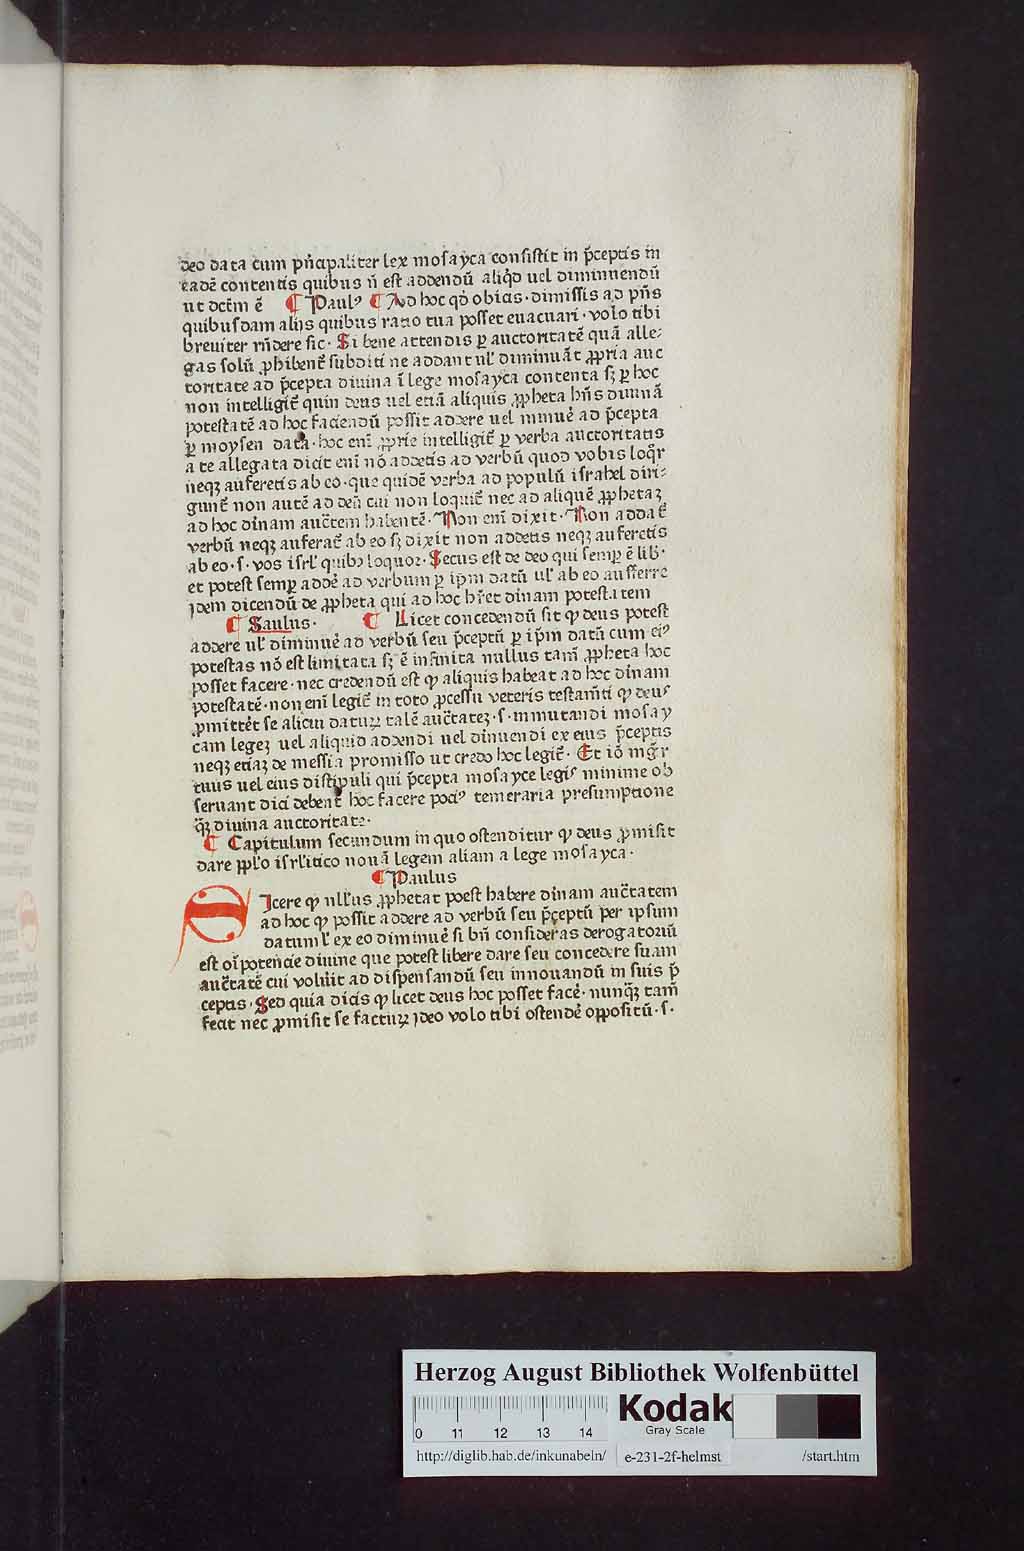 deo data cum pñcipaliter lex mosayca consistit in p̄ceptis in
eadē contentis quibus ñ est addendū aliq̇d uel diminuendū
ut dctm̄ ē ¶ Paulꝰ ¶ Ad hoc qḋ obicis · dimissis ad pñs
quibusdam alijs quibus ratio tua posset euacuari · volo tibi
breuiter rñdere sic · Si bene attendis ꝑ auctoritatē quā alle⸗
gas solū ꝓhibent̄ subditi ne addant ul' diminuāt ꝓpria auc
toritate ad p̄cepta diuina ī lege mosayca contenta sꝫ ꝑ hoc
non intelligit̄ quin deus uel etiā aliquis ꝓpheta hñs diuinā
potestatē ad hoc faciendū possit addere uel minue᷒ ad p̄cepta
ꝑ moysen data · hoc enī ꝓprie intelligit̄ ꝑ verba auctoritatis
a te allegata dicit enī nō addetis ad verbū quod vobis loq̇r
neqꝫ auferetis ab eo · que quidē verba ad populū israhel diri⸗
gunt̄ non autē ad deū cui non loquit̄ nec ad aliquē ꝓphetaꝫ
ad hoc diňam auc̄tem habentē · Non enī dixit · Non addat̄
verbū neqꝫ auferat̄ ab eo sꝫ dixit non addetis neqꝫ auferetis
ab eo · s · vos isrl' quibꝰ loquoꝛ · Secus est de deo qui semꝑ ē lib᷒
et potest semꝑ adde᷒ ad verbum ꝑ ip̄m datū ul' ab eo aufferre
jdem dicendū de ꝓpheta qui ad hoc hr̄et diňam potestatem
¶ Saulus · ¶ Licet concedendū sit ꝙ deus potest
addere ul' diminue᷒ ad verbū seu p̄ceptū ꝑ ip̄m datū cum eiꝰ
potestas nō est limitata sꝫ ē infinita nullus tam̄ ꝓpheta hoc
posset facere · nec credendū est ꝙ aliquis habeat ad hoc diňam
potestatē · non enī legit̄ in toto ꝓcessu veteris testam̄ti ꝙ deus
ꝓmitte᷒t se alicui daturꝝ talē auc̄tateꝫ · s · inmutandi mosay
cam legeꝫ uel aliquid addendi uel diīnuendi ex eius p̄ceptis
neqꝫ etiaꝫ de messia promisso ut credo hoc legit̄ · Et iō mg̃r
tuus uel eius disti᷒puli qui p̄cepta mosayce legis minime ob
seruant dici debent̄ hoc facere pociꝰ temeraria presumptione
q̄ꝫ diuina auctoritate ·
¶ Capitulum secundum in quo ostenditur ꝙ deus ꝓmisit
dare ppl'o isrl'itico nouā legem aliam a lege mosayca ·
¶ Paulus
Dicere ꝙ nll'us ꝓphetat poest habere diňam auc̄tatem
ad hoc ꝙ possit addere ad verbū seu p̄ceptū per ipsum
datum l' ex eo diminue᷒ si bñ consideras derogatoriū
est oīpotencie diuine que potest libere dare seu concedere suam
auc̄tatē cui volu᷒it ad dispensandū seu innouandū in suis p̄
ceptis · Sed quia dicis ꝙ licet deus hoc posset face᷒ · nunq̄ꝫ tam̄
fecit nec ꝓmisit se facturꝝ jdeo volo tibi ostende᷒ oppositū · s ·
Herzog August Bibliothek Wolfenbüttel
0 11 12 13 14
Kodak
Gray Scale
http://diglib.hab.de/inkunabeln/ e-231-2f-helmst /start.htm